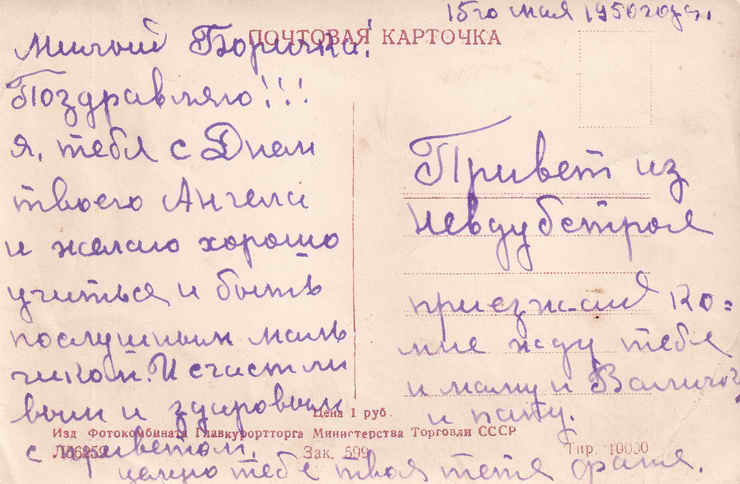 15го мая 1950 года.
ПОЧТОВАЯ КАРТОЧКА
Милый Боричка!
Поздравляю!!!
я, тебя с Днем
твоего Ангела
и желаю хорошо
учиться и быть
послушным маль
чиком. И счастли
вым и здоровым
с приветом.
целую тебе твоя тетя
Привет из
Невдубстроя
приезжай ко=
мне жду тебе
и маму и
и папу.
Цена 1 руб.
Изд Фотокомбината Главкурортторга Министерства Торговли СССР
Зак. 599
Тир. 10000